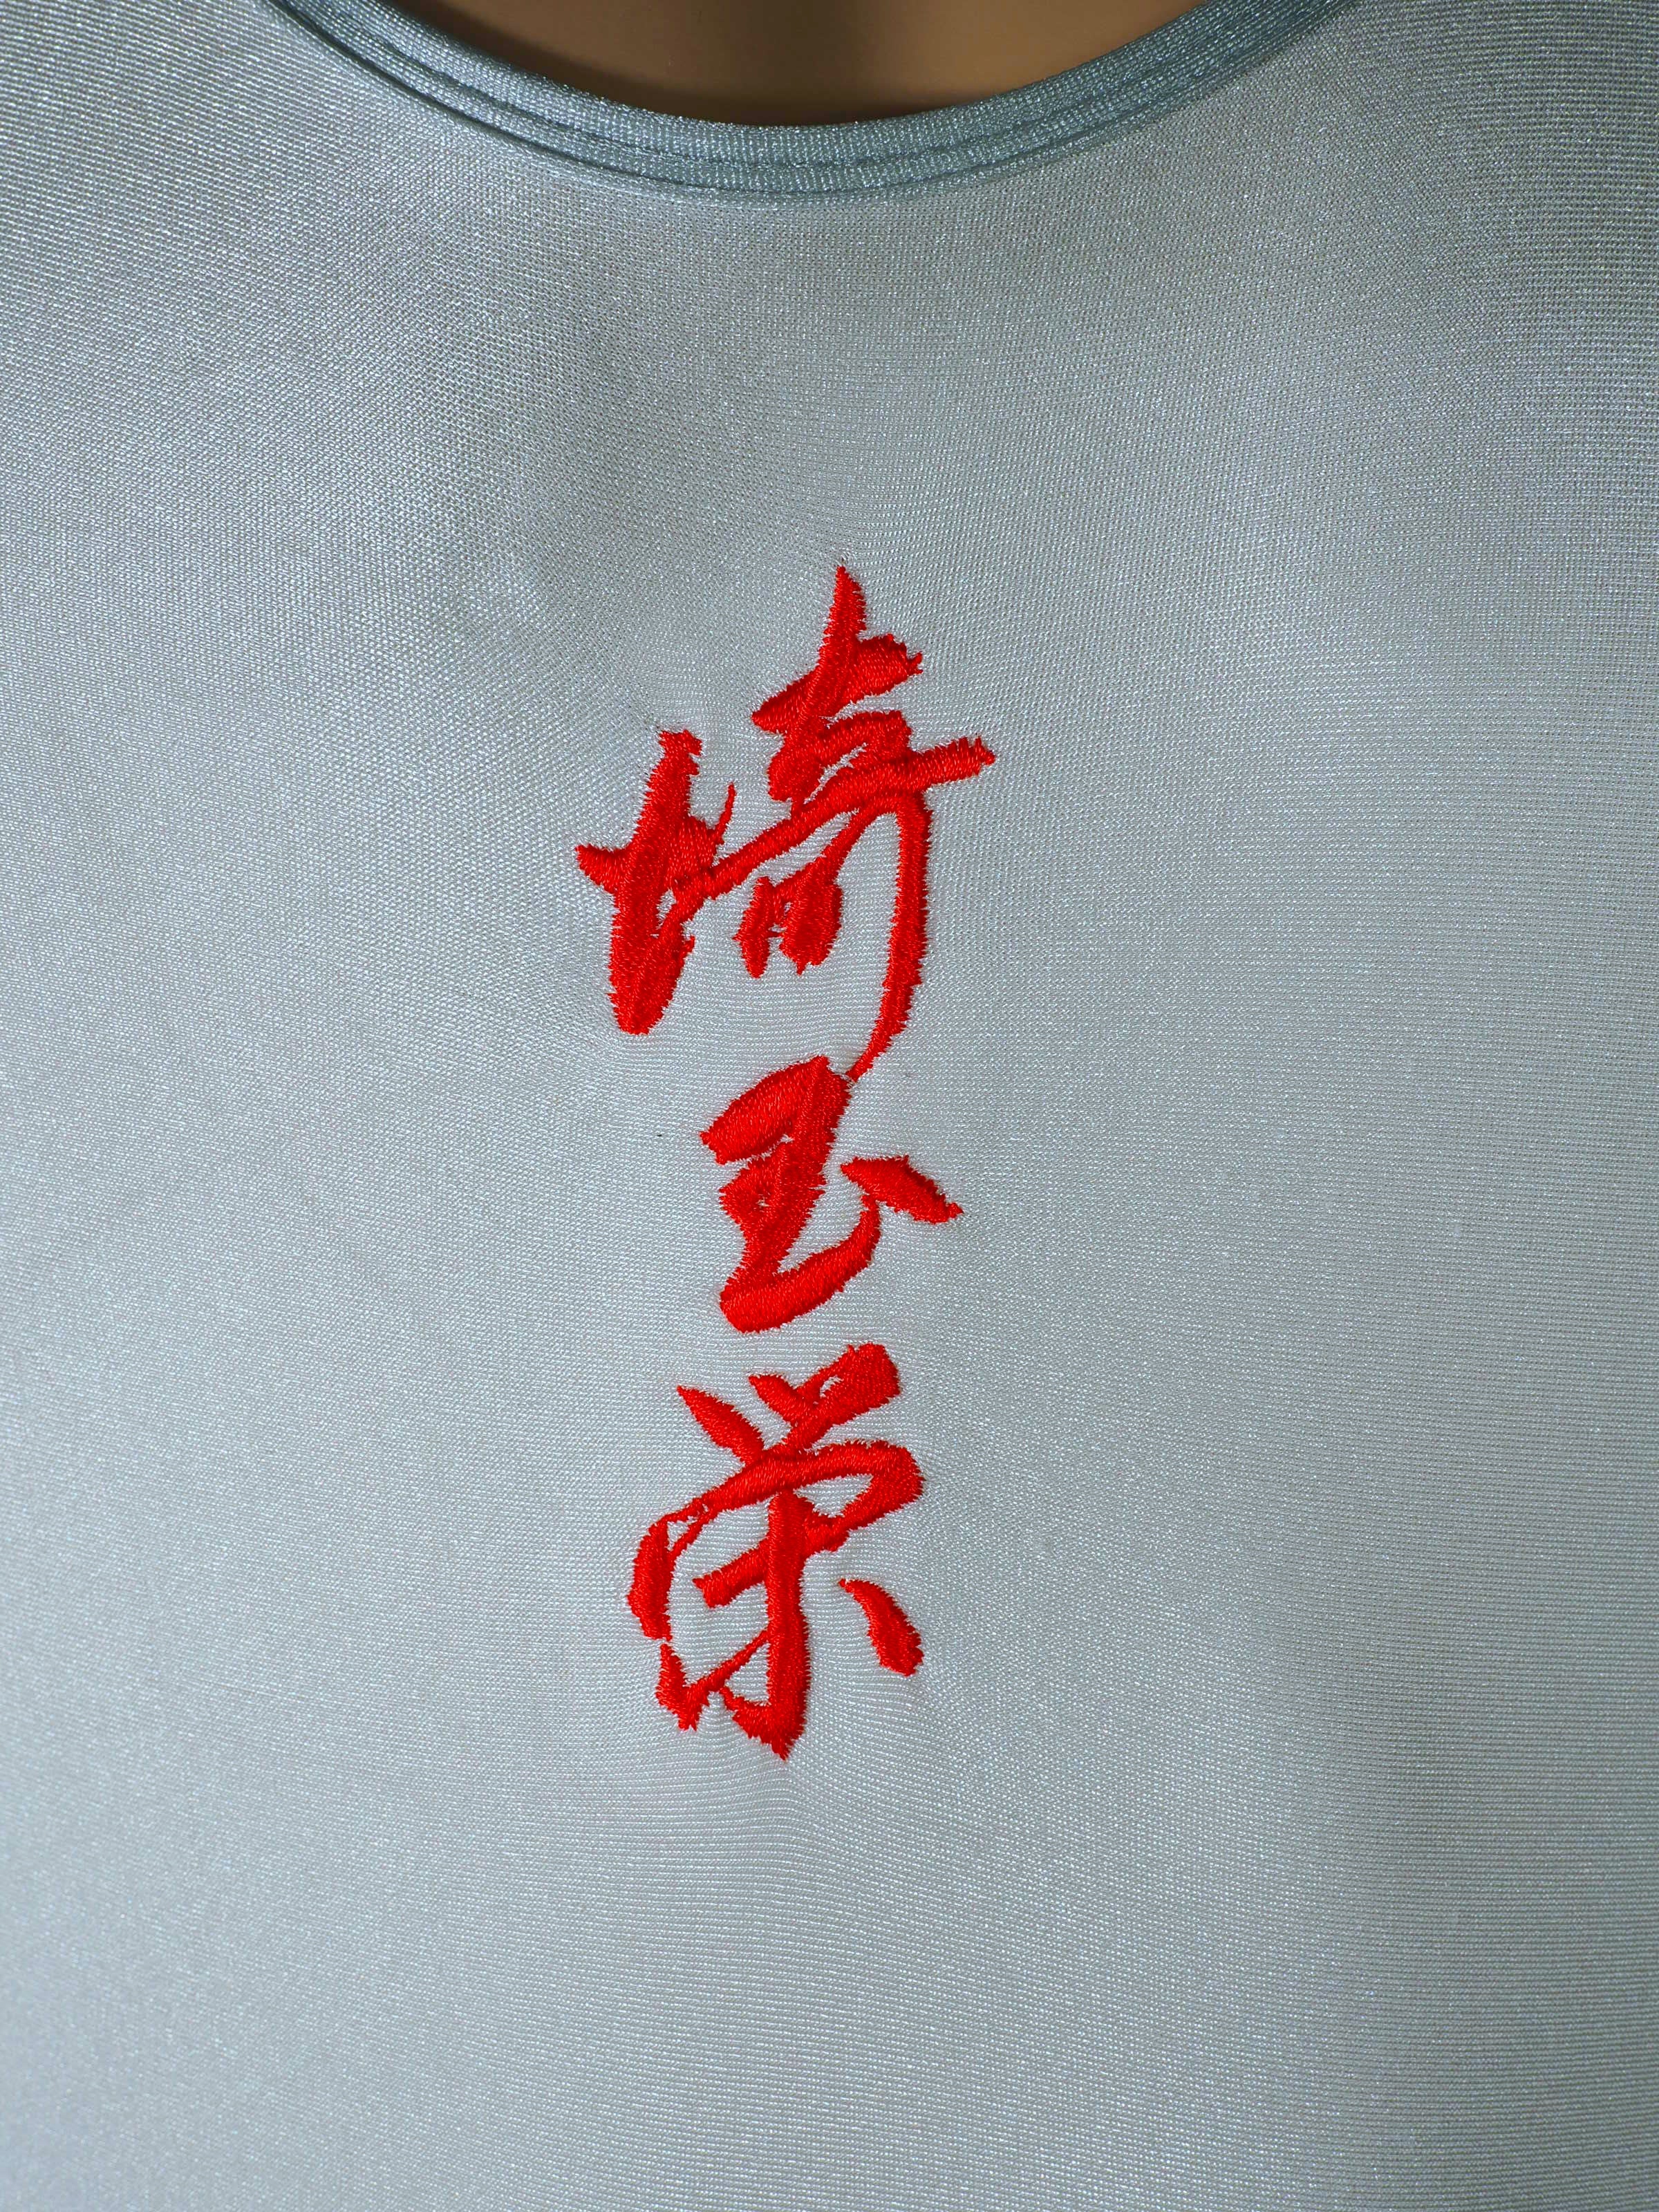 埼玉栄